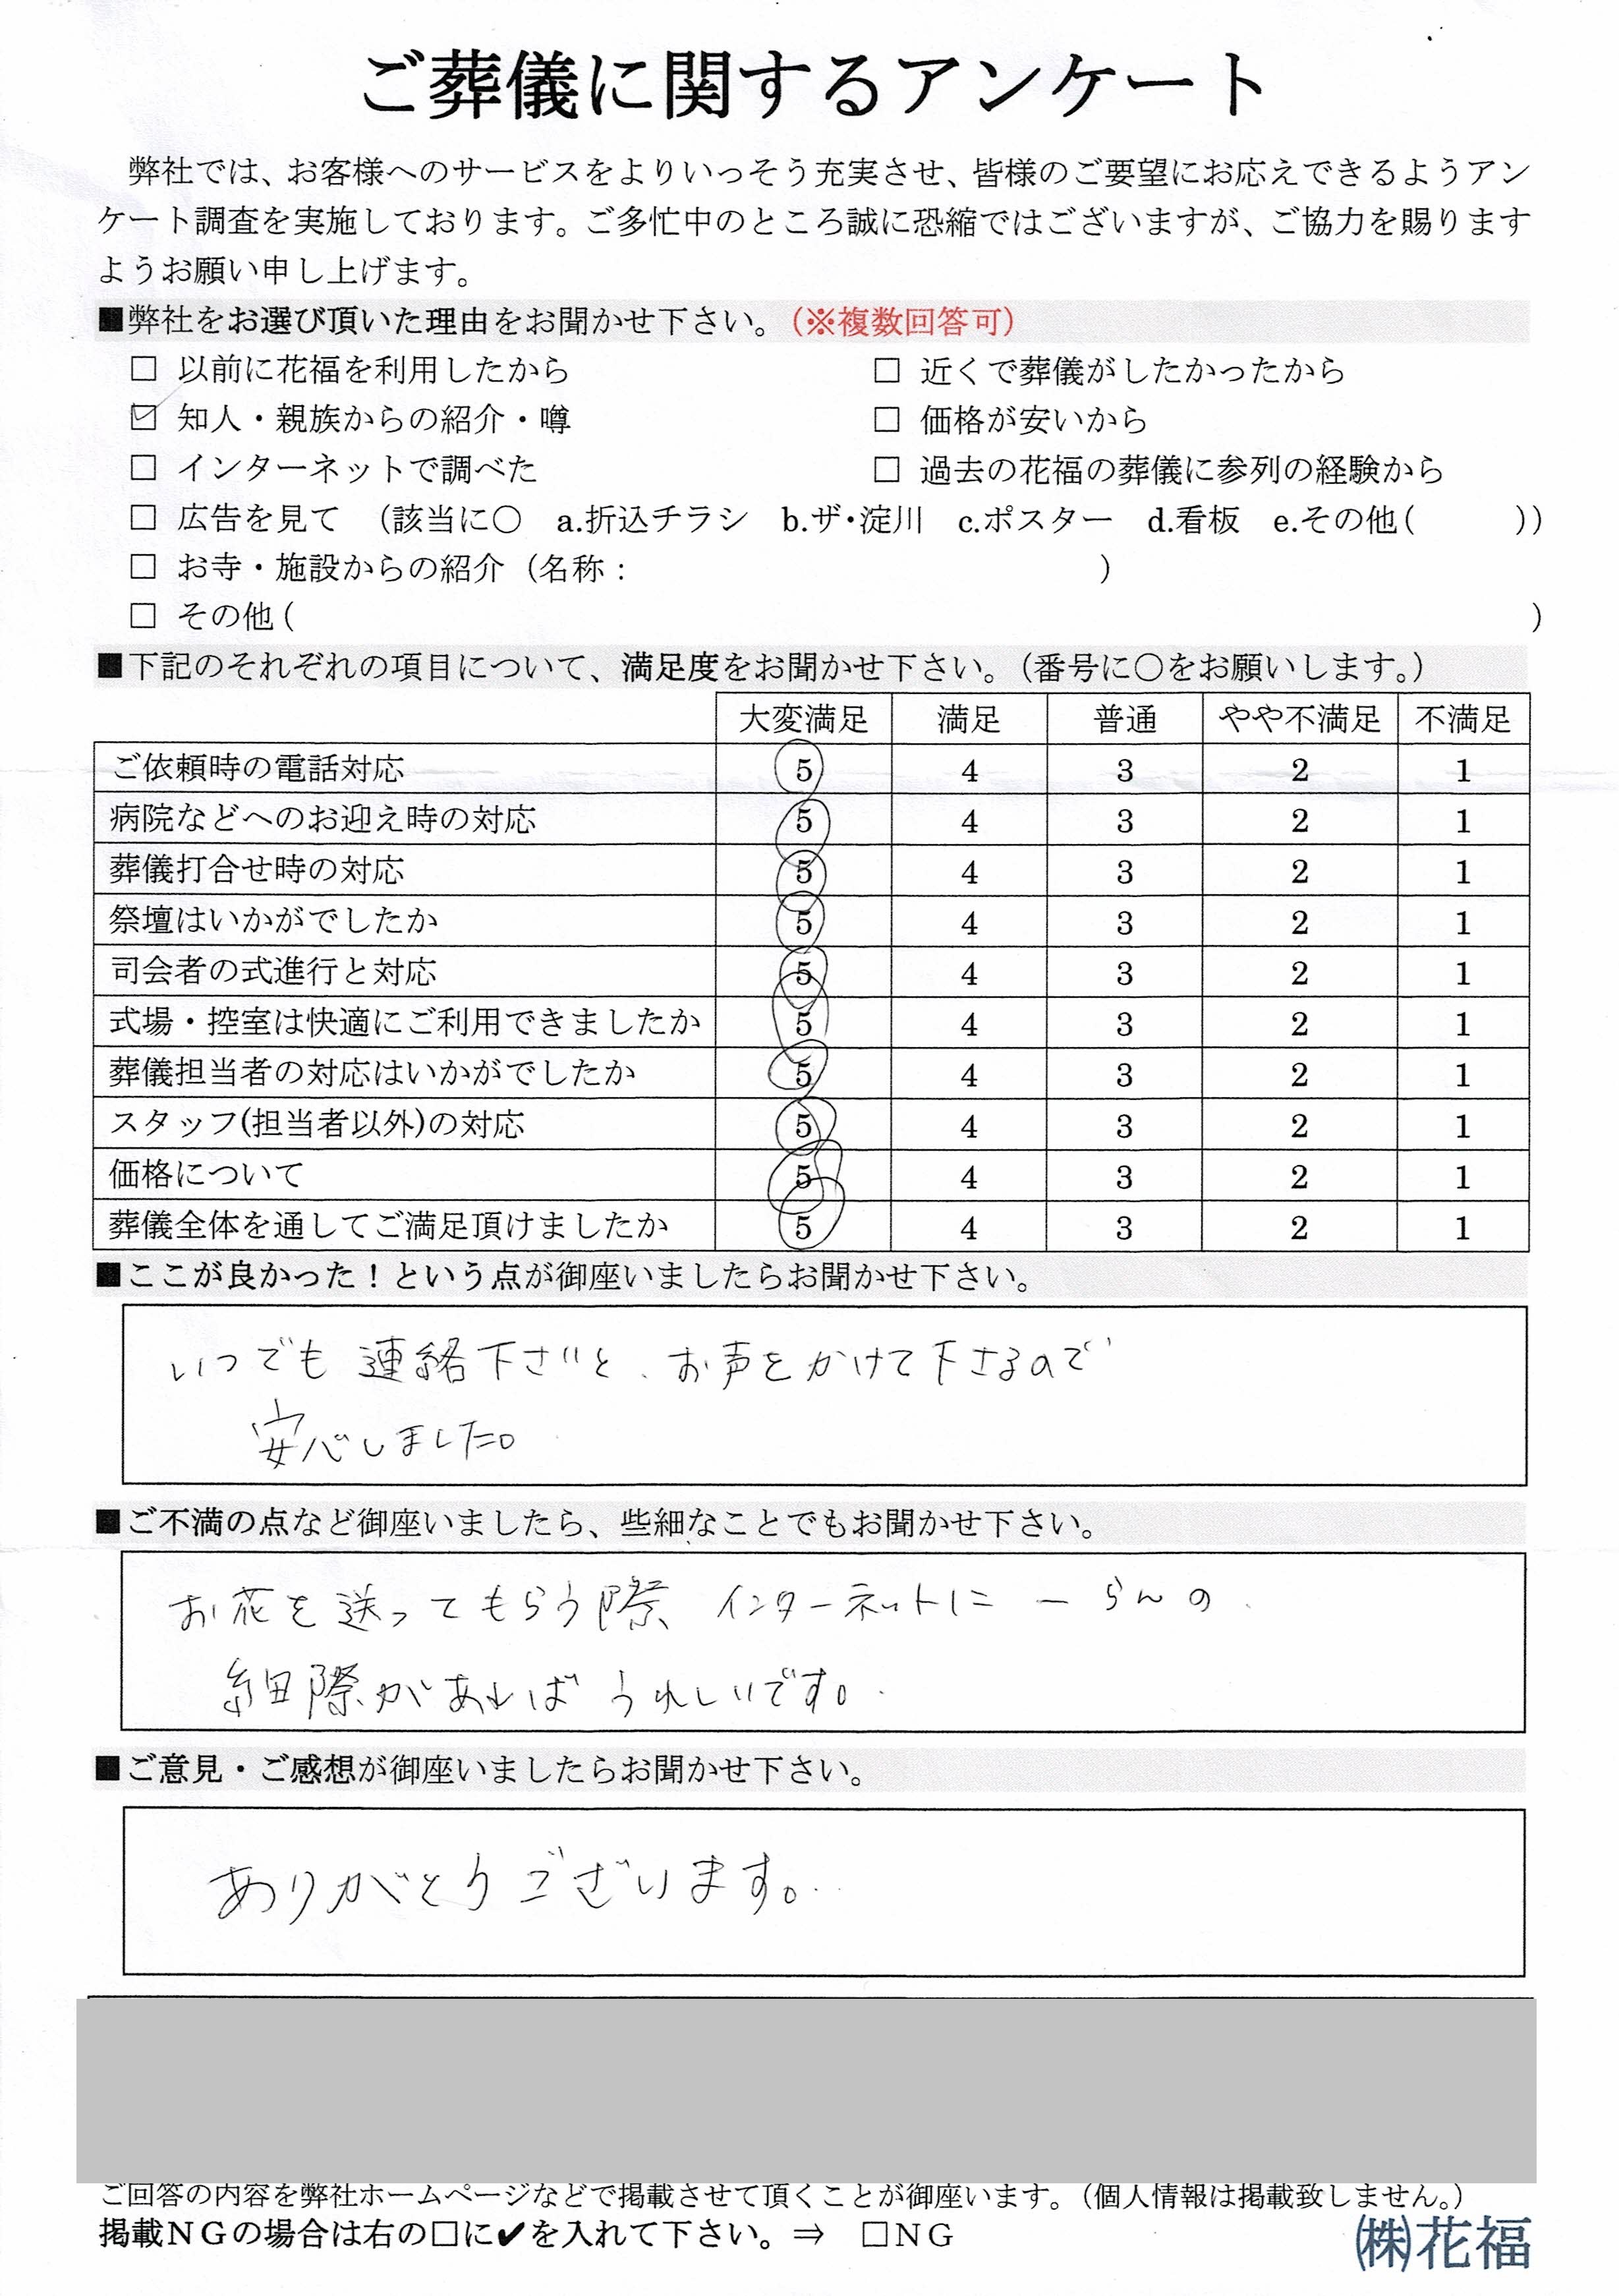 ご葬儀に関するアンケート
弊社では、お客様へのサービスをよりいっそう充実させ、皆様のご要望にお応えできるようアン
ケート調査を実施しております。ご多忙中のところ誠に恐縮ではございますが、ご協力を賜ります
ようお願い申し上げます。
■弊社をお選び頂いた理由をお聞かせ下さい。（※複数回答可）
□ 以前に花福を利用したから □ 近くで葬儀がしたかったから
☑ 知人・親族からの紹介・噂 □ 価格が安いから
□ インターネットで調べた □ 過去の花福の葬儀に参列の経験から
□ 広告を見て （該当に〇 a.折込チラシ b.ザ・淀川 c.ポスター d.看板 e.その他( ))
□ お寺・施設からの紹介（名称： ）
□ その他( )
■下記のそれぞれの項目について、満足度をお聞かせ下さい。（番号に〇をお願いします。）
大変満足 満足 普通 やや不満足 不満足
ご依頼時の電話対応 5 4 3 2 1
病院などへのお迎え時の対応 5 4 3 2 1
葬儀打合せ時の対応 5 4 3 2 1
祭壇はいかがでしたか 5 4 3 2 1
司会者の式進行と対応 5 4 3 2 1
式場・控室は快適にご利用できましたか 5 4 3 2 1
葬儀担当者の対応はいかがでしたか 5 4 3 2 1
スタッフ(担当者以外)の対応 5 4 3 2 1
価格について 5 4 3 2 1
葬儀全体を通してご満足頂けましたか 5 4 3 2 1
■ここが良かった！という点が御座いましたらお聞かせ下さい。
いつでも連絡下さいと、お声をかけて下さるので
安心しました。
■ご不満の点など御座いましたら、些細なことでもお聞かせ下さい。
お花を送ってもらう際 インターネットに 一らんの
細際があればうれしいです。
■ご意見・ご感想が御座いましたらお聞かせ下さい。
ありがとうございます。
ご回答の内容を弊社ホームページなどで掲載させて頂くことが御座います。（個人情報は掲載致しません。）
掲載NGの場合は右の□に✔を入れて下さい。⇒ □NG
㈱花福